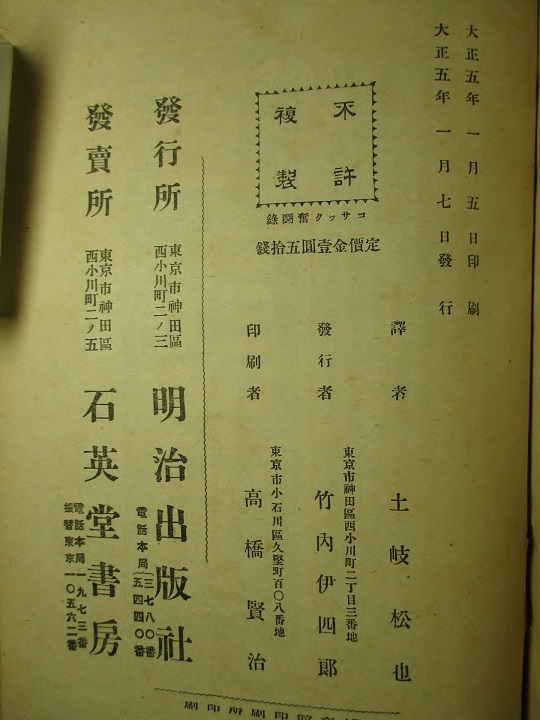 大正五年一月五日印刷
大正五年一月七日發行
不許
複製
コサック奮鬪錄
定價金壹圓五拾錢
譯者 土岐松也
東京市神田區西小川町二丁目三番地
發行者 竹內伊四郞
東京市小石川區久堅町百〇八番地
印刷者 高橋賢治
發行所 東京市神田區西小川町二ノ三 明治出版社 電話本局(三七八〇番 五四四〇番
發賣所 東京市神田區西小川町二ノ五 石英堂書房 電話本局一九七三番 振替東京一〇五六二番
印刷所印刷